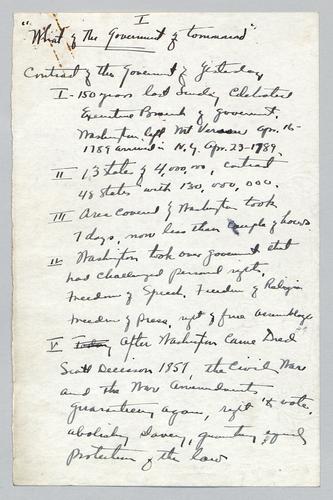 I
"What of the Government of tomorrow"
Contrast of the Government of Yesterday
I - 150 years last Sunday Celebrated
Executive Branch of government,
Washington left Mt Vernon Apr. 16-
1789 arrived in N.Y. Apr. 23-1789.
II 13 States of 4,000,000, contrast
48 States with 130,000,000.
III Area covered by Washington took
7 days, now less than couple of hours
IV Washington took over government that
had challenged personal rights,
Freedom of Speech, Freedom of Religion
Freedom of press, right of free assemblage
V Today After Washington Came Dred
Scott Decision 1857, the Civil War
and the War Amendments,
guaranteeing again, right to vote,
abolishing slavery, guaranteeing equal
protection of the law